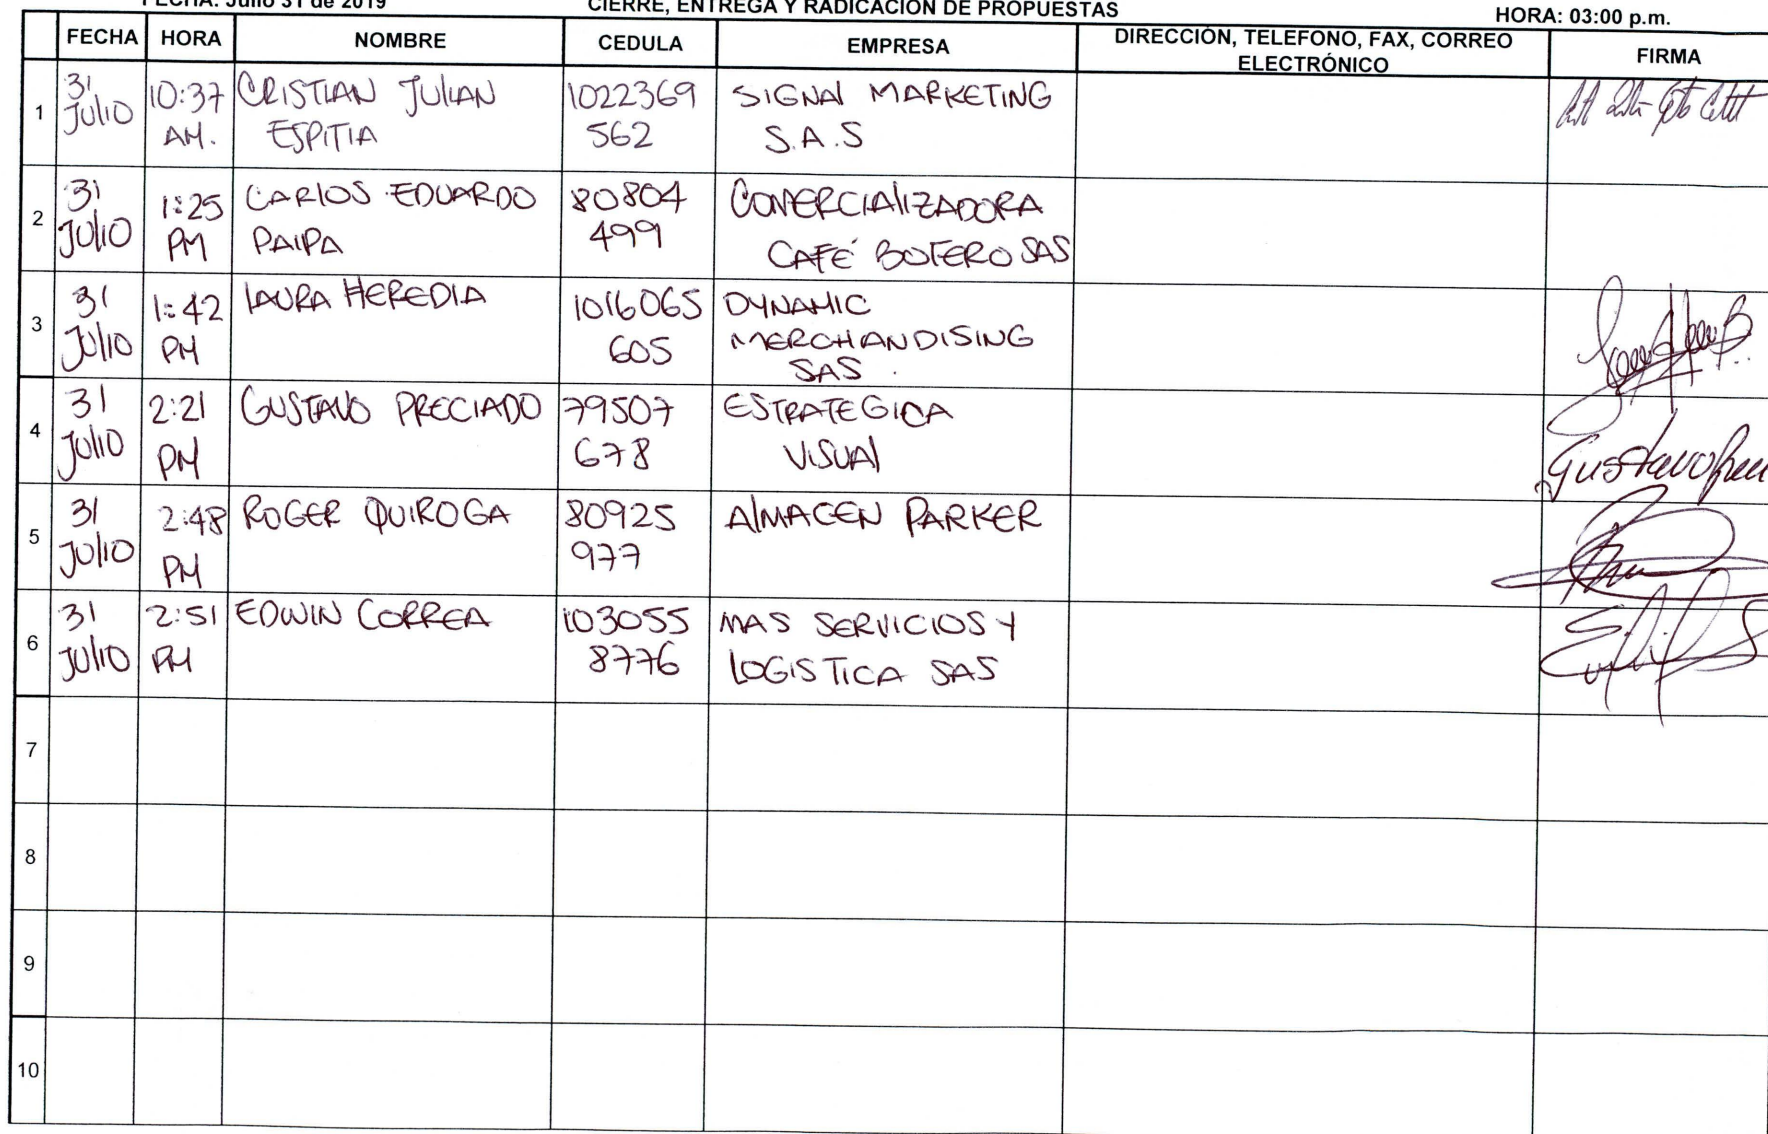 FECHA: Julio 31 de 2019 CIERRE, ENTREGA Y RADICACION DE PROPUESTAS HORA: 03:00 p.m.
FECHA HORA NOMBRE CEDULA EMPRESA DIRECCIÓN, TELEFONO, FAX, CORREO ELECTRÓNICO FIRMA
1 31 JULIO 10:37 AM. CRISTIAN JULIAN ESPITIA 1022369 562 SIGNAL MARKETING S.A.S
2 31 JULIO 1:25 PM CARLOS EDUARDO PAIPA 80804 499 COMERCIALIZADORA CAFÉ BOTERO SAS
3 31 JULIO 1:42 PM LAURA HEREDIA 1016065 605 DYNAMIC MERCHANDISING SAS.
4 31 JULIO 2:21 PM GUSTAVO PRECIADO 79507 678 ESTRATEGICA VISUAL Gustavo
5 31 JULIO 2:48 PM ROGER QUIROGA 80925 977 ALMACEN PARKER
6 31 JULIO 2:51 PM EDWIN CORREA 103055 8776 MAS SERVICIOS Y LOGISTICA SAS
7
8
9
10